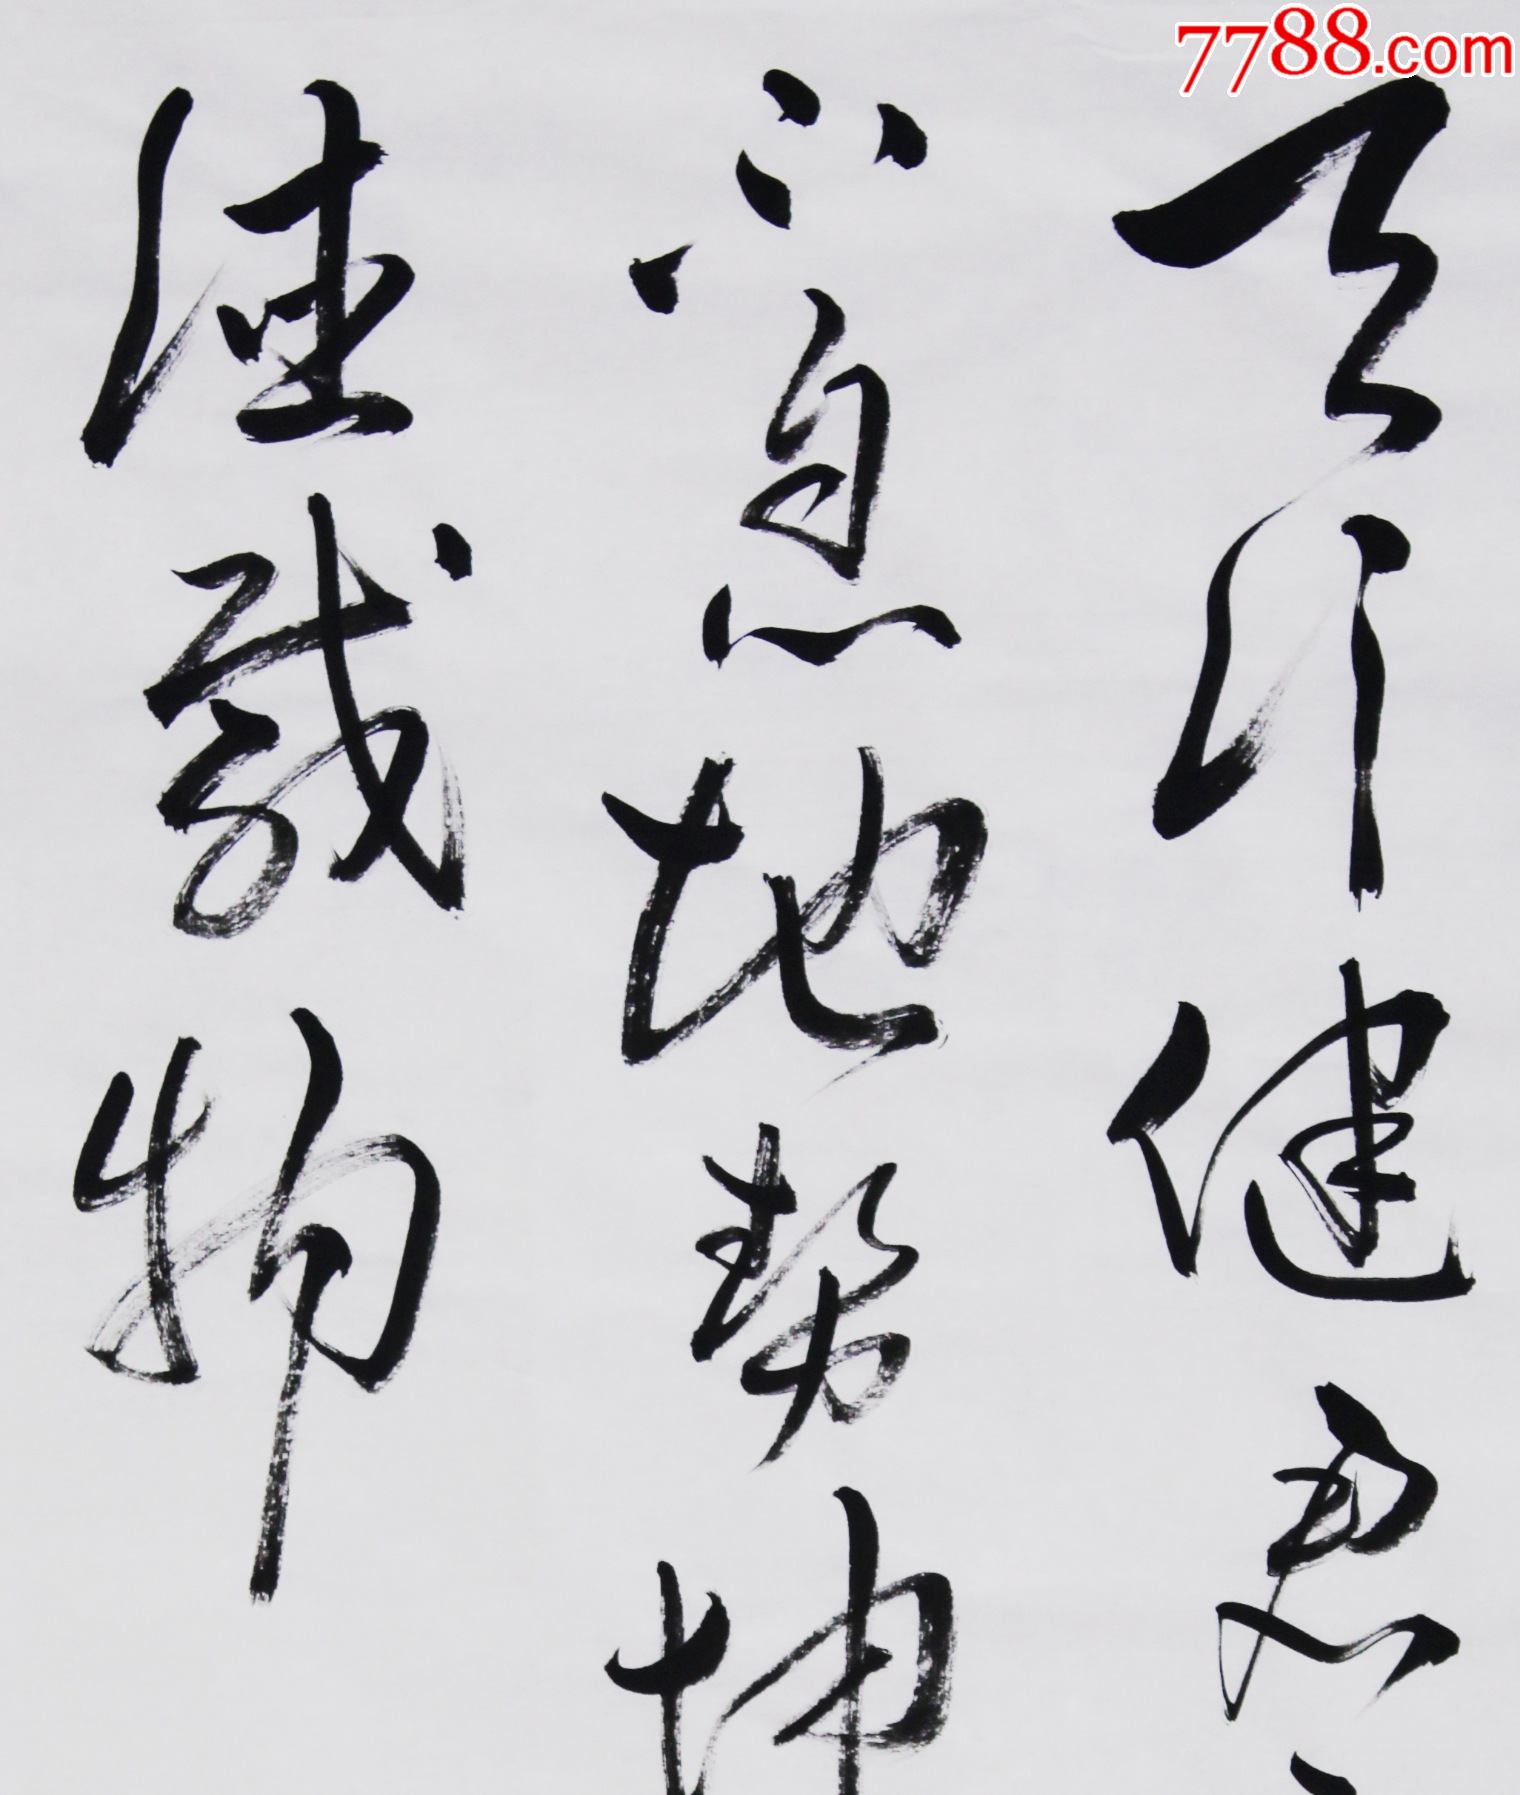 7788.com
天行健君
不息地势坤
德载物